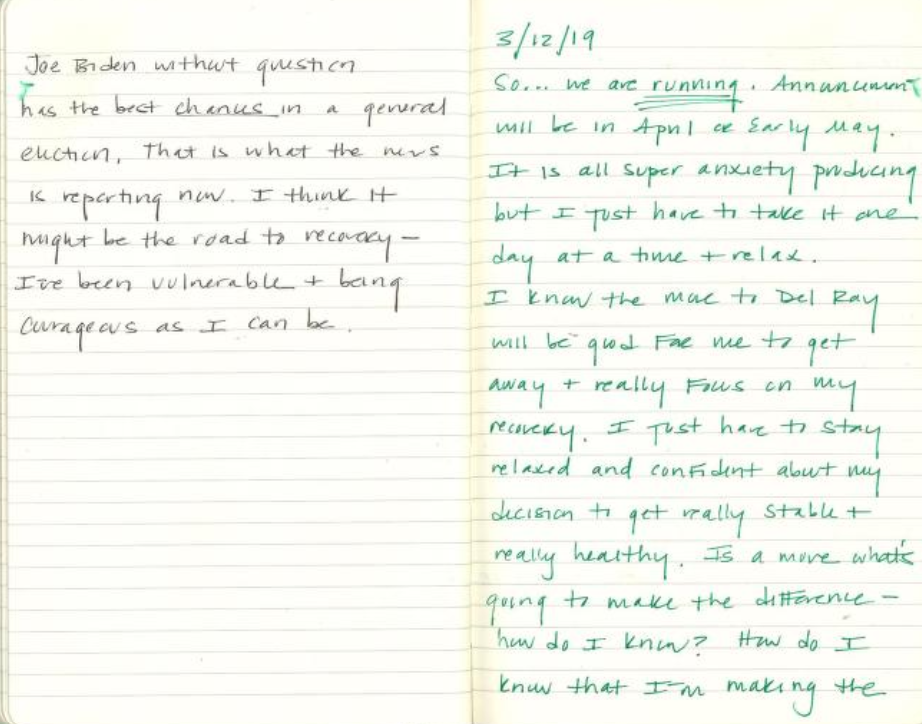 Joe Biden without question
has the best chances in a general
election. That is what the news
is reporting now. I think it
might be the road to recovery –
I've been vulnerable + being
curageous as I can be.
3/12/19
So... we are running. Announcement
will be in April or Early May.
It is all super anxiety producing
but I just have to take it one
day at a time + relax.
I know the move to Del Ray
will be good For me to get
away + really Focus on my
recovery. I just have to stay
relaxed and confident about my
decision to get really stable +
really healthy. Is a move what's
going to make the difference –
how do I know? How do I
know that I'm making the